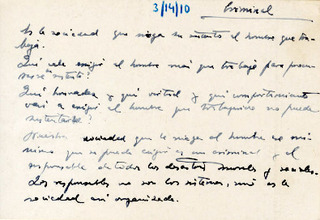 3/14/10
Criminal
Es la sociedad que niega su intento el hombre que tra-
baja.
Qué vale exigir el hombre más que trabajo para procu-
rarse
Qué honradez y qué virtud y qué comportamiento
vais a exigir el hombre que trabajando no puede
sustentarse?
Nuestra sociedad que le niega al hombre un mí-
nimo que se puede exigir es un criminal y el
responsable de todos los desastres morales y sociales.
Los responsables no son los sistemas, mi es la
sociedad mi organizada.